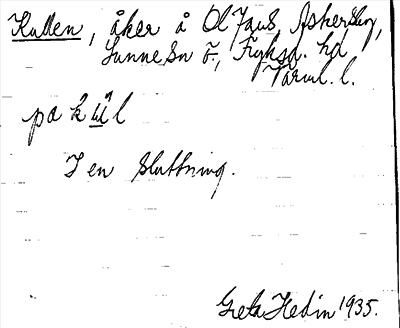 Kullen, åker å Ol Jans, Askersby,
Sunne sn Ö., Fryksd. hd
Värml. l.
pa kul
I en sluttning.
Greta Hedin 1935.